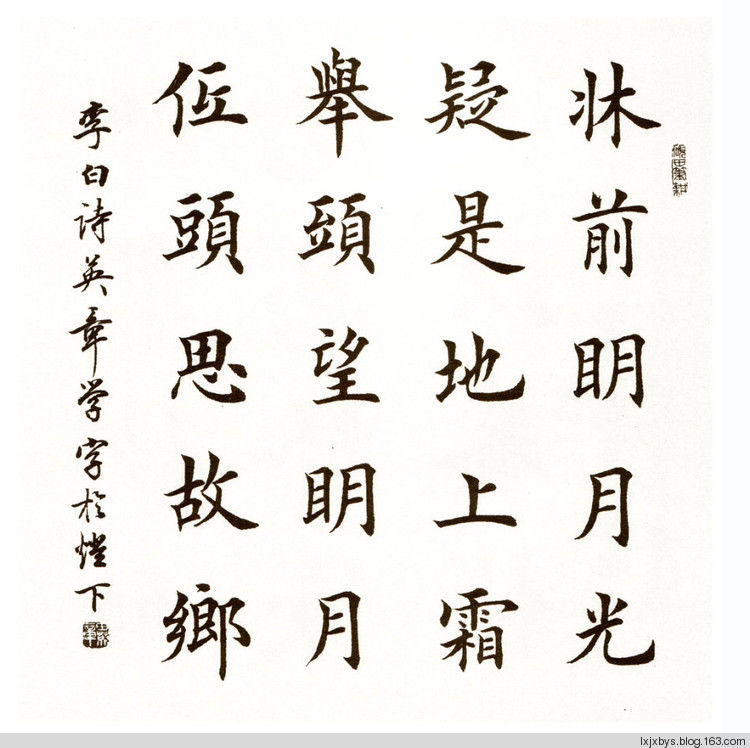 牀前明月光
疑是地上霜
舉頭望明月
低頭思故鄉
李白詩英章学字於燈下
lxjxbys.blog.163.com